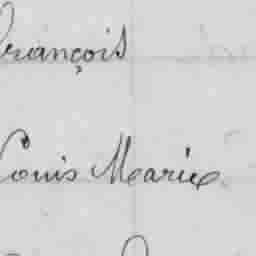 François
Louis Marie